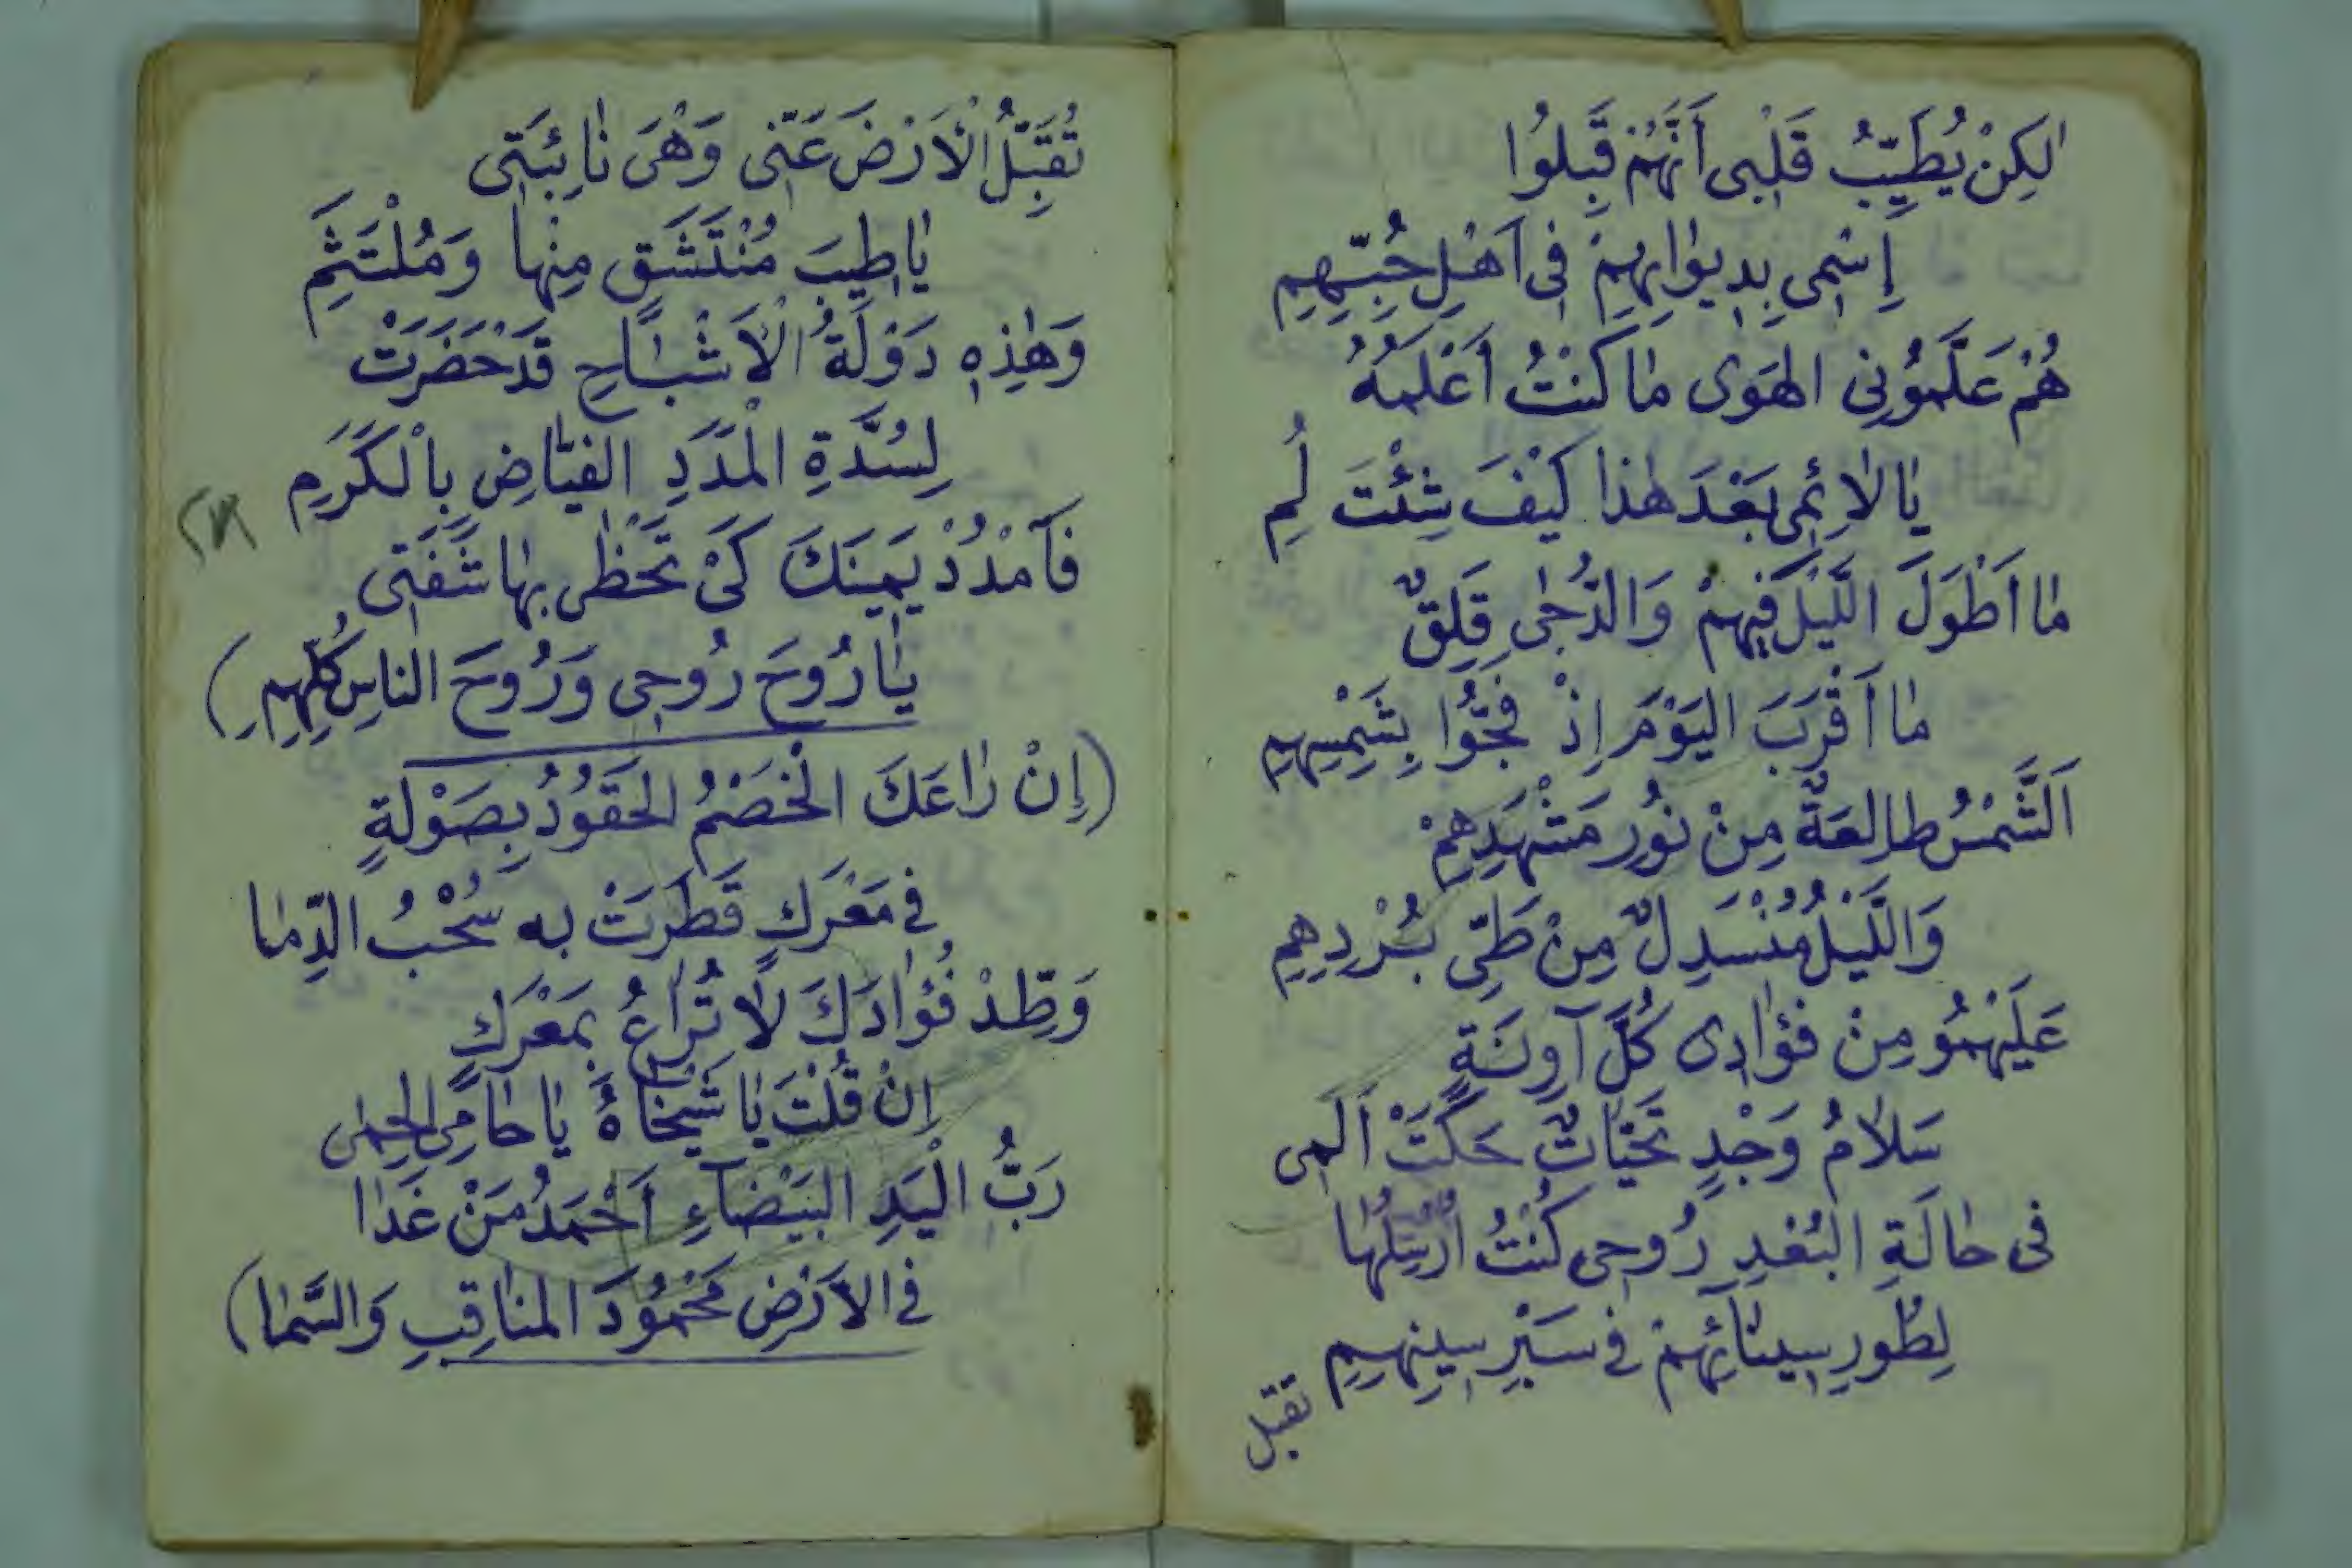 لٰكِنْ يُطَيِّبُ قَلْبِى أَنَّهُمْ قَبِلُوا
إِسْمِى بِدِيوَانِهِمْ فِى اَهْلِ حُبِّهِمِ
هُمْ عَلَّمُونِى الهَوَى مٰا كُنْتُ أَعْلَمُهُ
يٰا لاٰئِمِى بَعْدَ هٰذا كَيْفَ شِئْتَ لُمِ
مٰا اَطْوَلَ اللَّيْلَ فِيهِمْ وَالدُّجٰى قَلِقٌ
مٰا اَقْرَبَ اليَوْمَ اِذْ فَجُّوا بِشَمْسِهِمِ
اَلشَّمْسُ طالِعَةٌ مِنْ نُورِ مَشْهَدِهِمْ
وَاللَّيْلُ مُنْسَدِلٌ مِنْ طَىِّ بُرْدِهِمِ
عَلَيْهِمُو مِنْ فُؤٰادِى كُلَّ آوِنَةٍ
سَلاٰمُ وَجْدٍ تَحَيّٰاتٌ حَكَتْ اَلَمِى
فى حٰالَةِ البُعْدِ رُوحِى كُنْتُ اُرْسِلُهٰا
لِطُورِ سِينٰائِهِمْ فِى سَيْرِ سِينِهِمِ
تقبل
تُقَبِّلُ الْاَرْضَ عَنّى وَهْىَ نٰائِبَتِى
يٰا طِيبَ مُنْتَشَقٍ مِنْهٰا وَمُلْتَثَمِ
وَهٰذِهِ دَوْلَةُ الْاَشْبٰاحِ قَدْ حَضَرَتْ
لِسُدَّةِ الْمَدَدِ الفَيّٰاضِ بِالْكَرَمِ
فَآمْدُدْ يَمِينَكَ كَىْ تَحْظٰى بِهٰا شَفَتِى
يٰا رُوحَ رُوحِى وَرُوحَ النٰاسِ كُلِّهِمِ)
(إِنْ رٰاعَكَ الْخَصْمُ الحَقُودُ بِصَوْلَةٍ
فِى مَعْرَكٍ قَطَرَتْ بِه سُحْبُ الدِّمٰا
وَطِّدْ فُؤٰادَكَ لاٰ تُرٰاعُ بِمَعْرَكٍ
اِنْ قُلْتَ يٰا شَيْخٰاهُ يٰا حٰامِى الحِمٰى
رَبُّ الْيَدِ البَيْضٰآءِ اَحْمَدُ مَنْ غَدٰا
فِى الاَرْضِ مَحْمُودَ المنٰاقِبِ وَالسَّمٰا)